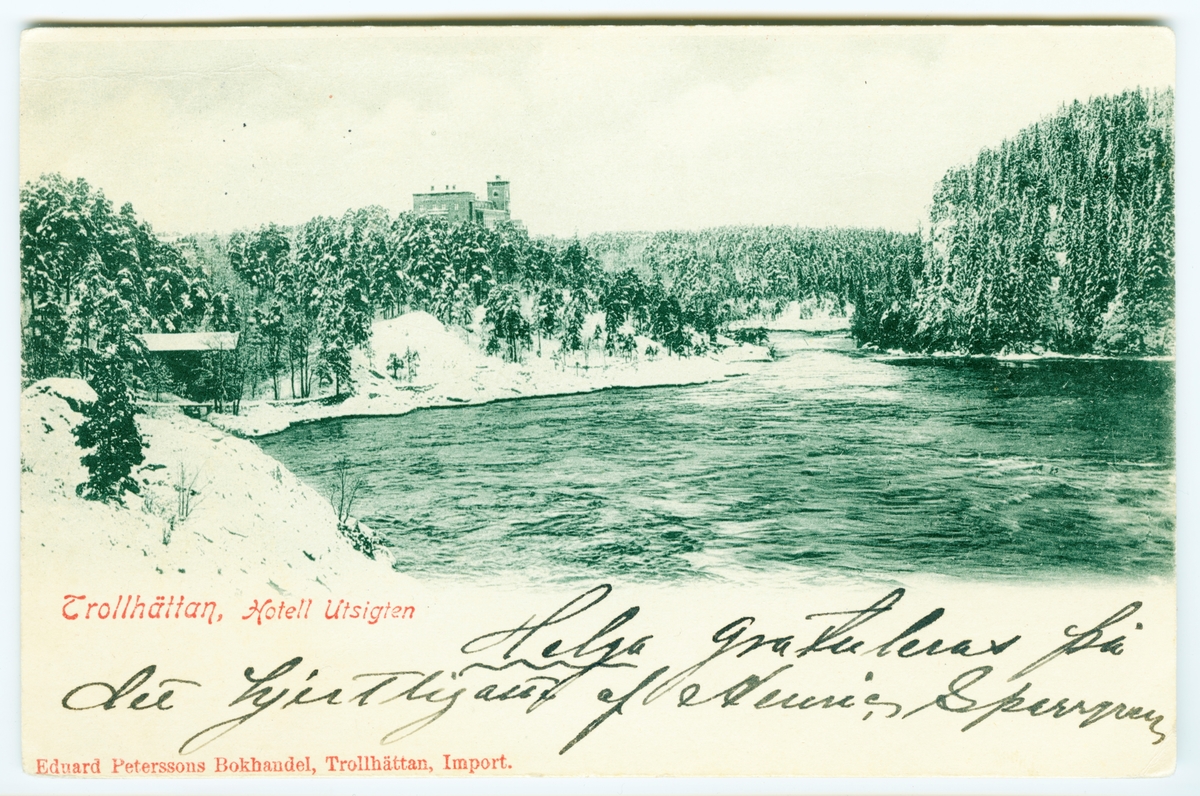 Trollhättan, Hotell Utsigten
Helga gratuleras på
det hjertligaste af Sperrgren
Eduard Peterssons Bokhandel, Trollhättan, Import.